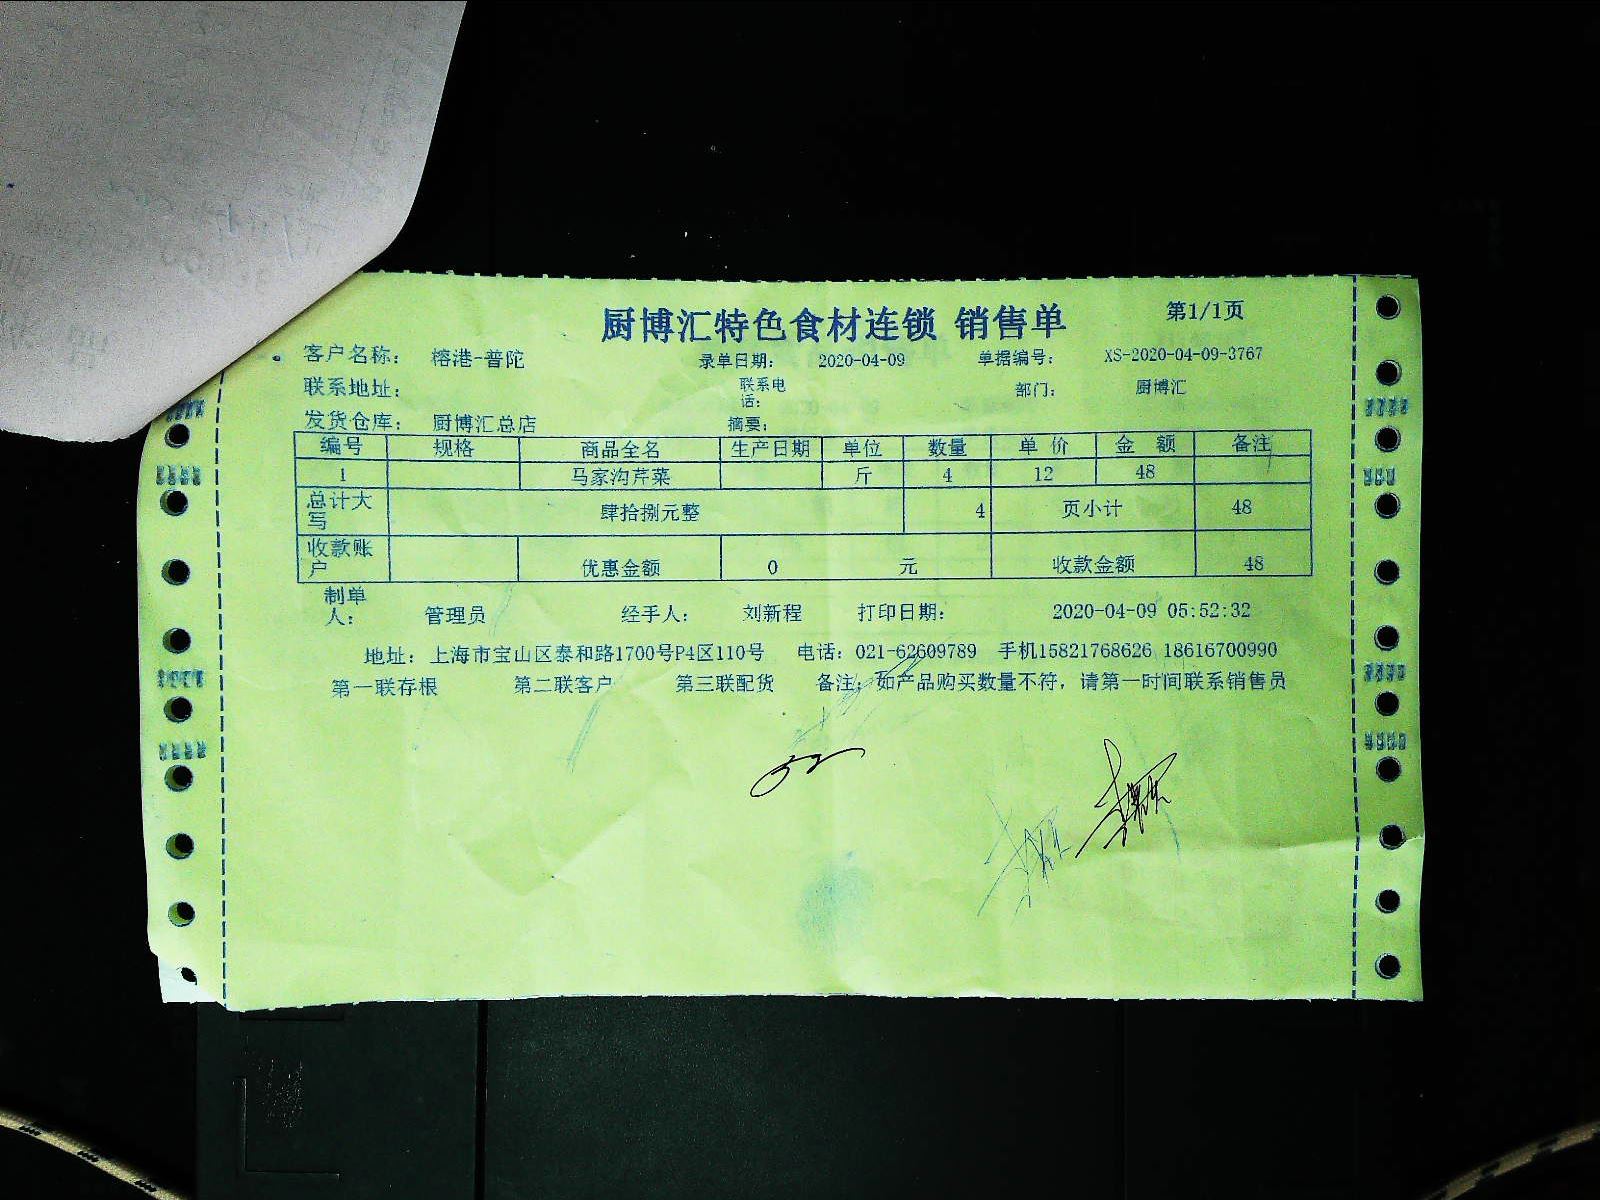 厨博汇特色食材连锁 销售单 第1/1页
客户名称： 榕港-普陀 录单日期： 2020-04-09 单据编号： XS-2020-04-09-3767
联系地址： 联系电话： 部门： 厨博汇
发货仓库： 厨博汇总店 摘要：
编号 规格 商品全名 生产日期 单位 数量 单 价 金 额 备注
1 马家沟芹菜 斤 4 12 48
总计大写 肆拾捌元整 4 页小计 48
收款账户 优惠金额 0 元 收款金额 48
制单人： 管理员 经手人： 刘新程 打印日期： 2020-04-09 05:52:32
地址：上海市宝山区泰和路1700号P4区110号 电话：021-62609789 手机15821768626 18616700990
第一联存根 第二联客户 第三联配货 备注：如产品购买数量不符，请第一时间联系销售员